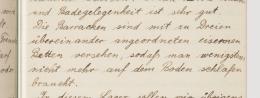 und Badegelegenheit ist sehr gut.
Die Barracken sind mit zu Dreien
übereinander angeordneten eisernen
Betten versehen, sodaß man wenigstens
nicht mehr auf dem Boden schlafen
braucht.
In diesem Lager sollen wir übrigens